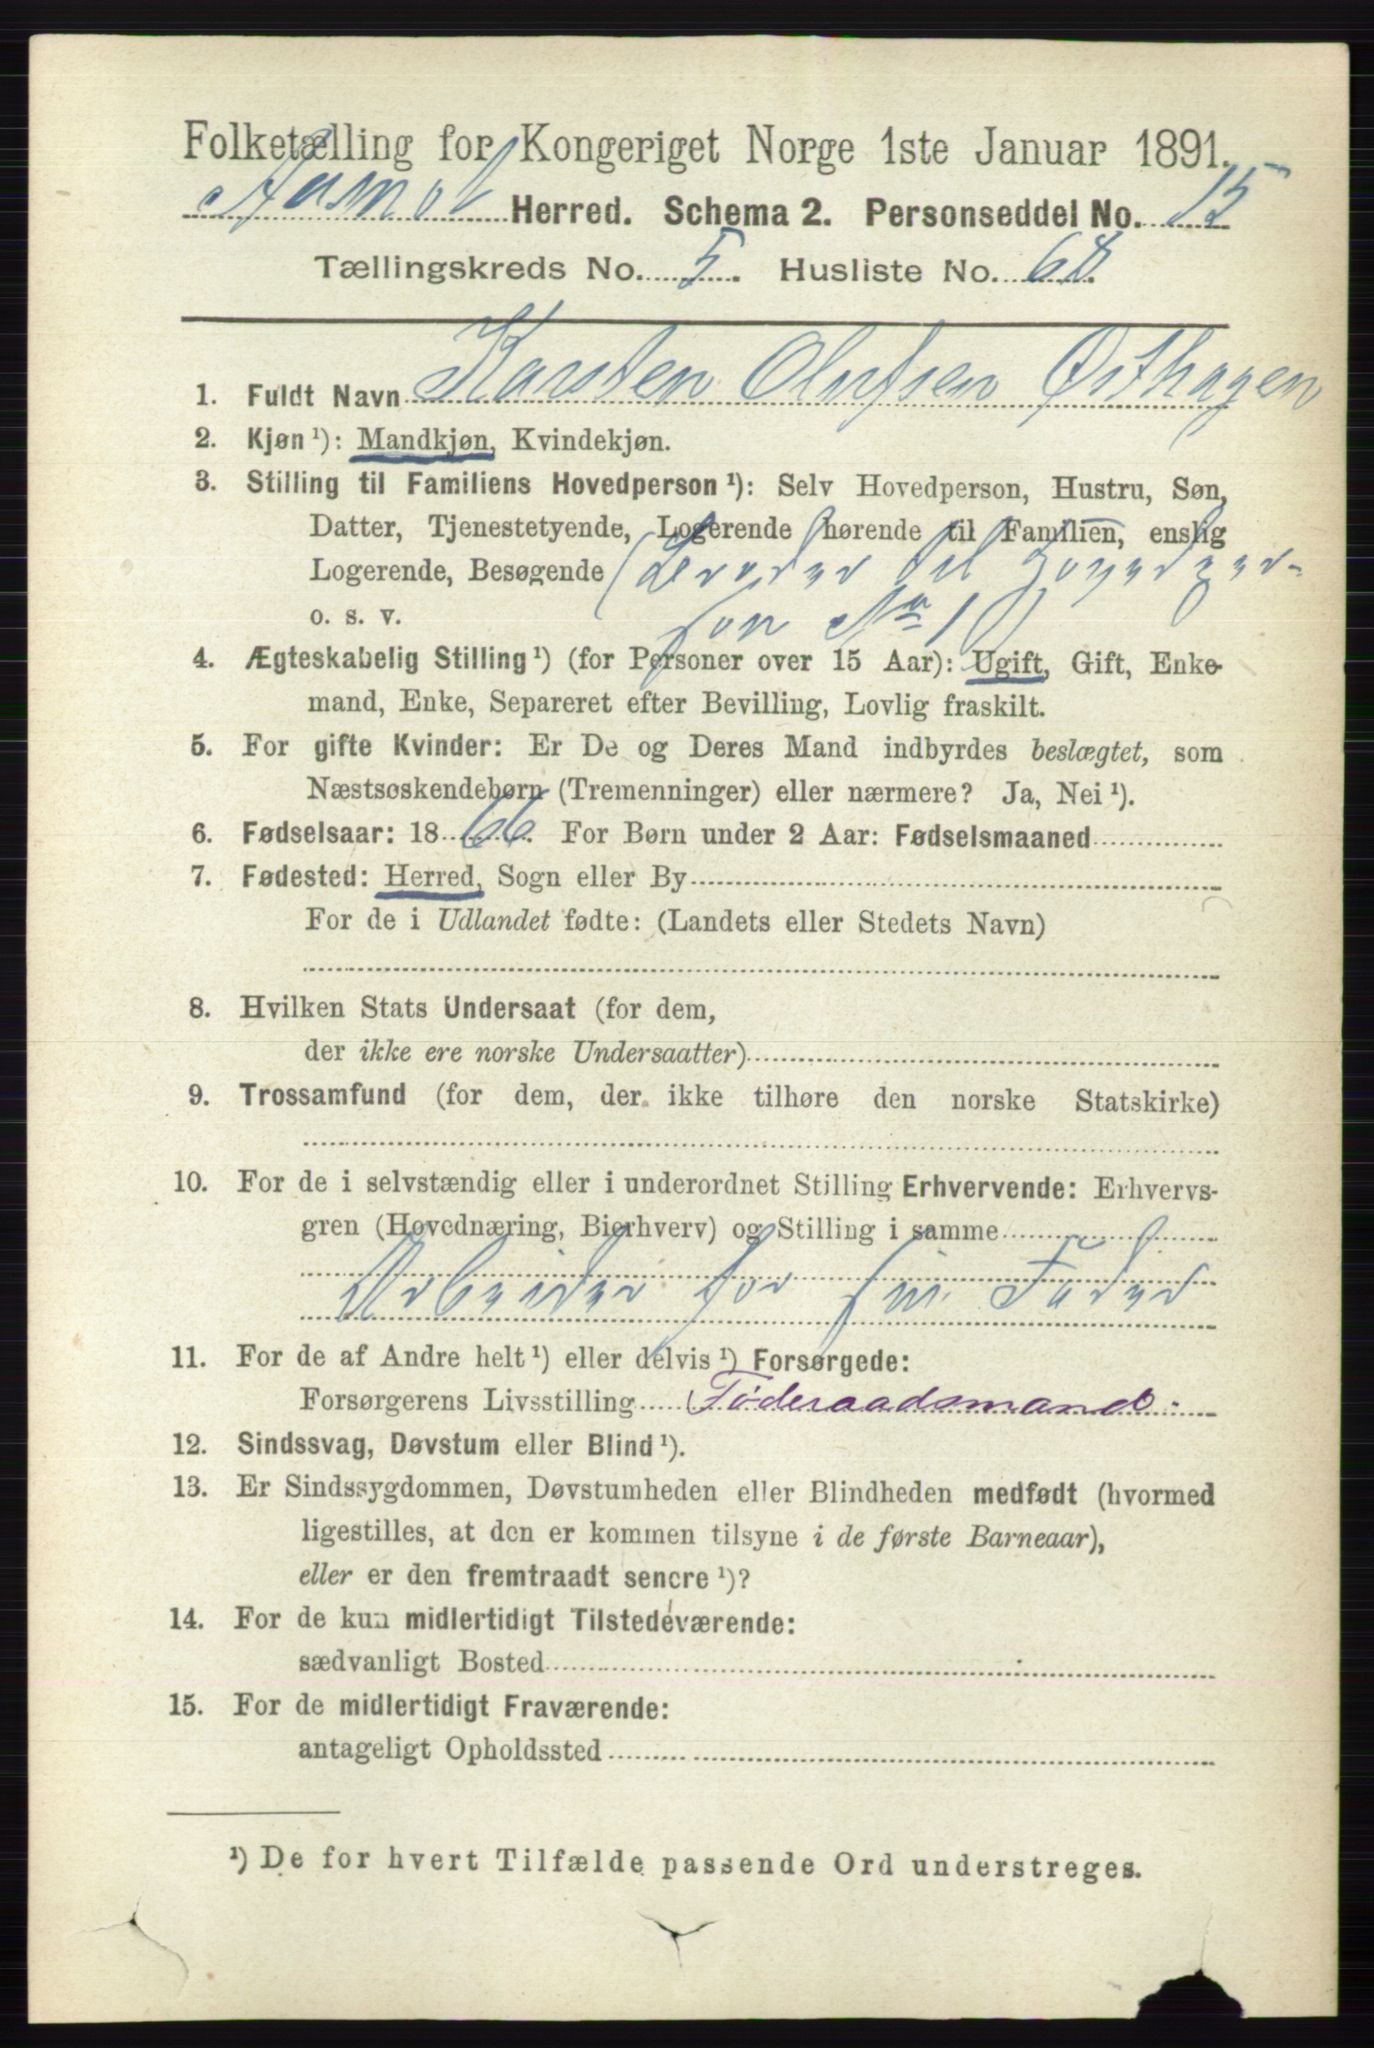 Folketælling for Kongeriget Norge 1ste Januar 1891.
Aasnes Herred. Schema 2. Personseddel No. 15
Tællingskreds No. 5. Husliste No. 68.
1. Fuldt Navn Karsten Olufsen Østhagen
2. Kjøn ¹): Mandkjøn, Kvindekjøn.
3. Stilling til Familiens Hovedperson ¹): Selv Hovedperson, Hustru, Søn,
Datter, Tjenestetyende, Logerende hørende til Familien, enslig
Logerende, Besøgende (Broder til Hovedper-
o. s. v. son No 1)
4. Ægteskabelig Stilling ¹) (for Personer over 15 Aar): Ugift, Gift, Enke-
mand, Enke, Separeret efter Bevilling, Lovlig fraskilt.
5. For gifte Kvinder: Er De og Deres Mand indbyrdes beslægtet, som
Næstsøskendebørn (Tremenninger) eller nærmere? Ja, Nei ¹).
6. Fødselsaar: 1866. For Børn under 2 Aar: Fødselsmaaned
7. Fødested: Herred, Sogn eller By
For de i Udlandet fødte: (Landets eller Stedets Navn)
8. Hvilken Stats Undersaat (for dem,
der ikke ere norske Undersaatter)
9. Trossamfund (for dem, der ikke tilhøre den norske Statskirke)
10. For de i selvstændig eller i underordnet Stilling Erhvervende: Erhvervs-
gren (Hovednæring, Bierhverv) og Stilling i samme
Arbeider for sin Fader
11. For de af Andre helt ¹) eller delvis ¹) Forsørgede:
Forsørgerens Livsstilling Føderaadsmand.
12. Sindssvag, Døvstum eller Blind ¹).
13. Er Sindssygdommen, Døvstumheden eller Blindheden medfødt (hvormed
ligestilles, at den er kommen tilsyne i de første Barneaar),
eller er den fremtraadt senere ¹)?
14. For de kun midlertidigt Tilstedeværende:
sædvanligt Bosted
15. For de midlertidigt Fraværende:
antageligt Opholdssted
¹) De for hvert Tilfælde passende Ord understreges.